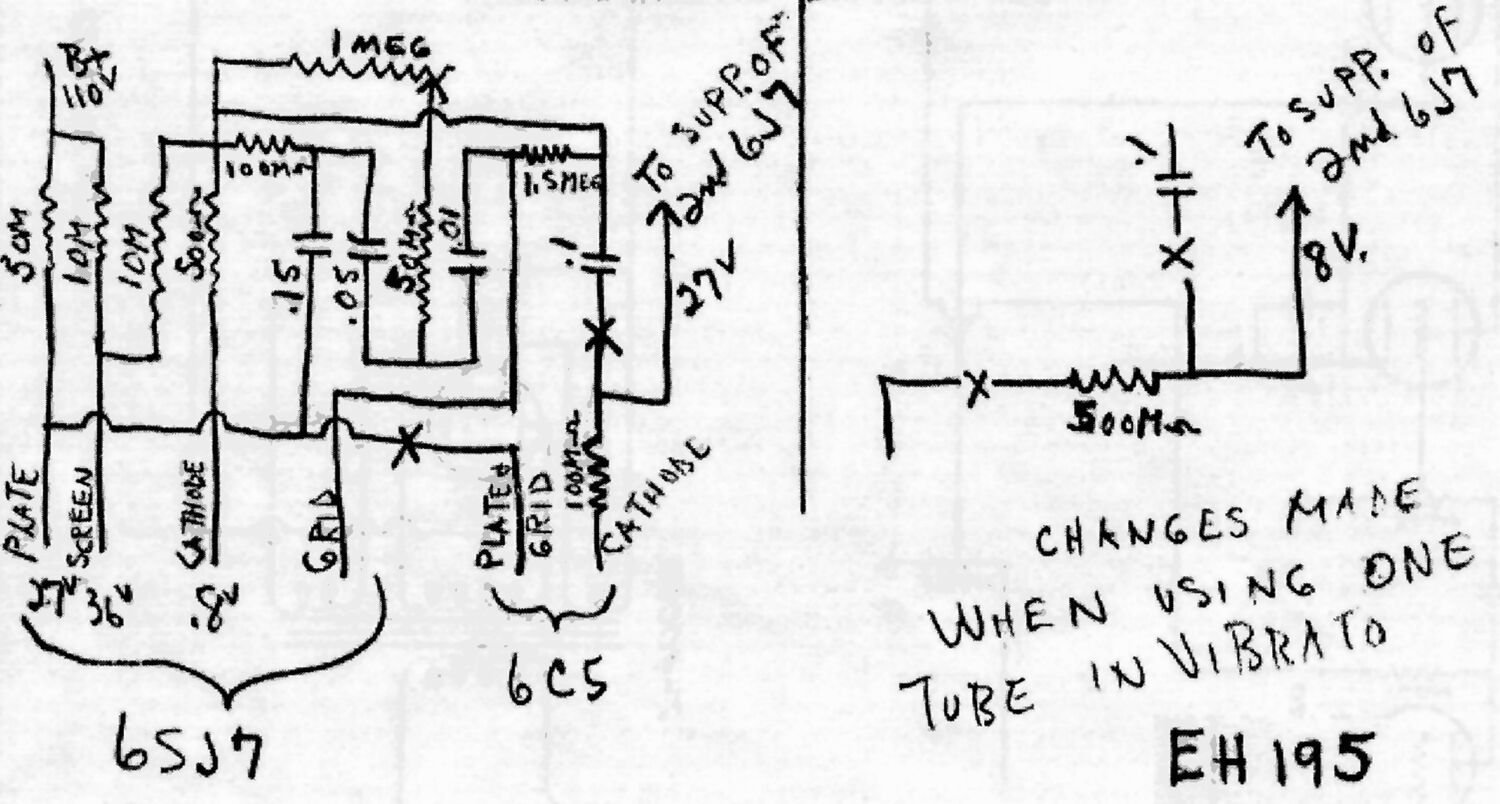 B+
110V
1 MEG
TO SUPP. OF
2nd 6J7
27V
50M
10M
10M
500Ω
100MΩ
.15
.05
50M
.01
1.5MEG
.1
100MΩ
PLATE
SCREEN
CATHODE
GRID
PLATE &
GRID
CATHODE
27V
36V
.8V
6SJ7
6C5
.1
TO SUPP. OF
2nd 6J7
8V.
500MΩ
CHANGES MADE
WHEN USING ONE
TUBE IN VIBRATO
EH195